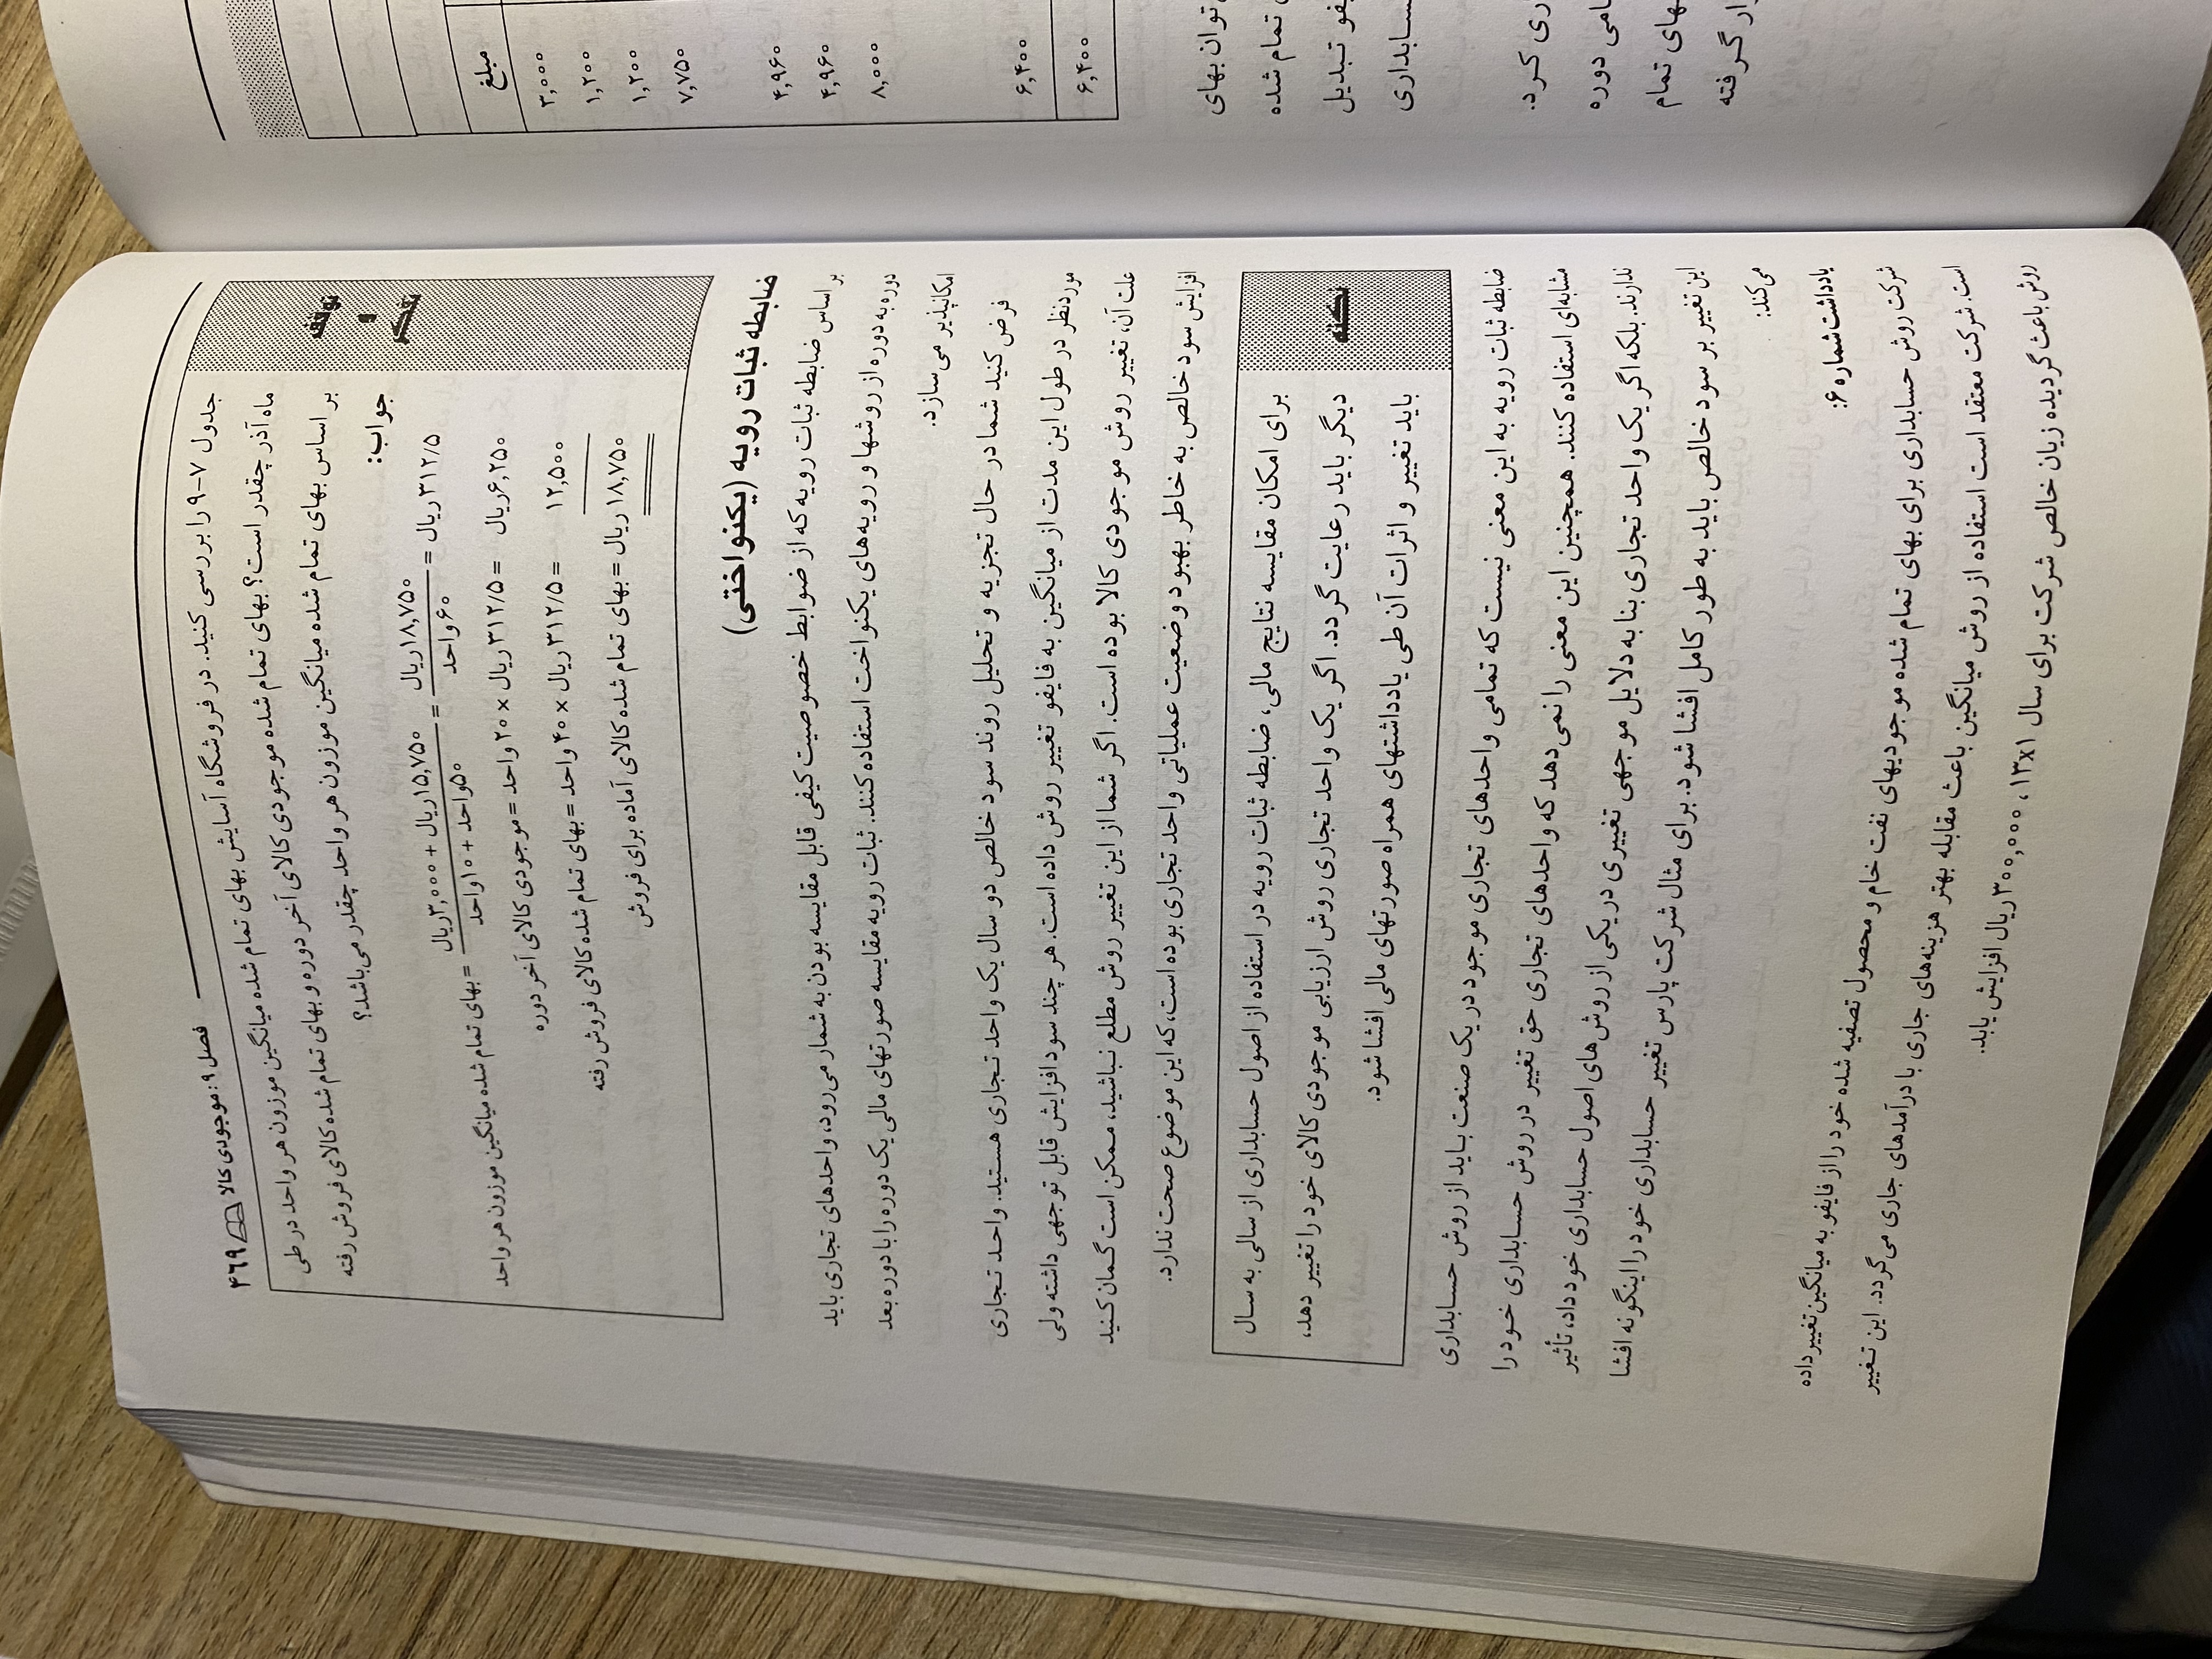 فصل ۹: موجودی کالا ۴۶۹
جدول ۷–۹ را بررسی کنید. در فروشگاه آسایش بهای تمام شده میانگین موزون هر واحد در طی
ماه آذر چقدر است؟ بهای تمام شده موجودی کالای آخر دوره و بهای تمام شده کالای فروش رفته
بر اساس بهای تمام شده میانگین موزون هر واحد چقدر می‌باشد؟
توقف
و
تفکر
جواب:
۳۱۲/۵ ریال = ۱۸,۷۵۰ ریال / ۶۰ واحد = ۱۵,۷۵۰ ریال + ۳,۰۰۰ ریال / ۵۰ واحد + ۱۰ واحد = بهای تمام شده میانگین موزون هر واحد
۶,۲۵۰ ریال = ۳۱۲/۵ ریال × ۲۰ واحد = موجودی کالای آخر دوره
۱۲,۵۰۰ = ۳۱۲/۵ ریال × ۴۰ واحد = بهای تمام شده کالای فروش رفته
۱۸,۷۵۰ ریال = بهای تمام شده کالای آماده برای فروش
ضابطه ثبات رویه (یکنواختی)
بر اساس ضابطه ثبات رویه که از ضوابط خصوصیت کیفی قابل مقایسه بودن به شمار می‌رود، واحدهای تجاری باید
دوره به دوره از روشها و رویه‌های یکنواخت استفاده کنند. ثبات رویه مقایسه صورتهای مالی یک دوره را با دوره بعد
امکانپذیر می‌سازد.
فرض کنید شما در حال تجزیه و تحلیل روند سود خالص دو سال یک واحد تجاری هستید. واحد تجاری
موردنظر در طول این مدت از میانگین به فایفو تغییر روش داده است. هر چند سود افزایش قابل توجهی داشته ولی
علت آن، تغییر روش موجودی کالا بوده است. اگر شما از این تغییر روش مطلع نباشید، ممکن است گمان کنید
افزایش سود خالص به خاطر بهبود وضعیت عملیاتی واحد تجاری بوده است، که این موضوع صحت ندارد.
نکته
برای امکان مقایسه نتایج مالی، ضابطه ثبات رویه در استفاده از اصول حسابداری از سالی به سال
دیگر باید رعایت گردد. اگر یک واحد تجاری روش ارزیابی موجودی کالای خود را تغییر دهد،
باید تغییر و اثرات آن طی یادداشتهای همراه صورتهای مالی افشا شود.
ضابطه ثبات رویه به این معنی نیست که تمامی واحدهای تجاری موجود در یک صنعت باید از روش حسابداری
مشابه‌ای استفاده کنند. همچنین این معنی را نمی‌دهد که واحدهای تجاری حق تغییر در روش حسابداری خود را
ندارند. بلکه اگر یک واحد تجاری بنا به دلایل موجهی تغییری در یکی از روش‌های اصول حسابداری خود داد، تأثیر
این تغییر بر سود خالص باید به طور کامل افشا شود. برای مثال شرکت پارس تغییر حسابداری خود را اینگونه افشا
می‌کند:
یادداشت شماره ۶:
شرکت روش حسابداری برای بهای تمام شده موجودیهای نفت خام و محصول تصفیه شده خود را از فایفو به میانگین تغییر داده
است. شرکت معتقد است استفاده از روش میانگین باعث مقابله بهتر هزینه‌های جاری با درآمدهای جاری می‌گردد. این تغییر
روش باعث گردیده زیان خالص شرکت برای سال ۱۳x۱، ۳۰۰,۰۰۰ ریال افزایش یابد.
مبلغ
۳,۰۰۰
۱,۲۰۰
۱,۲۰۰
۷,۷۵۰
۴,۹۶۰
۴,۹۶۰
۸,۰۰۰
۶,۴۰۰
۶,۴۰۰
توان بهای
تمام شده
تبدیل
حسابداری
کرد.
دوره
تمام
گرفته